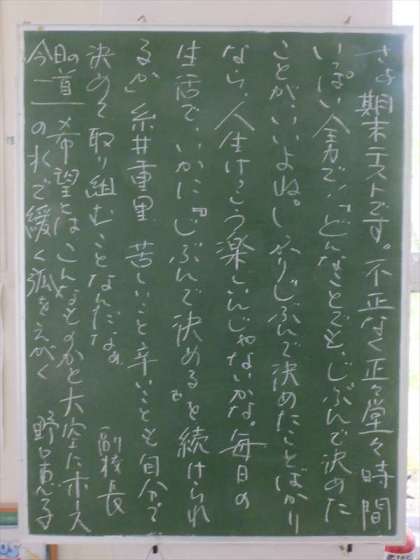 さあ期末テストです。不正なく正々堂々時間
いっぱい全力で！「どんなことでも、じぶんで決めた
ことが、いいよね。しっかりじぶんで決めたことばかり
なら、人生けっこう楽しいんじゃないかな。毎日の
生活で、いかに『じぶんで決める』を続けられ
るか」糸井重里 苦しいこと辛いことも自分で
決めて取り組むことなんだなぁ 副校長
今日の一首 〆希望とはこんなものかと大空にホース
の水で緩く弧をえがく 野口